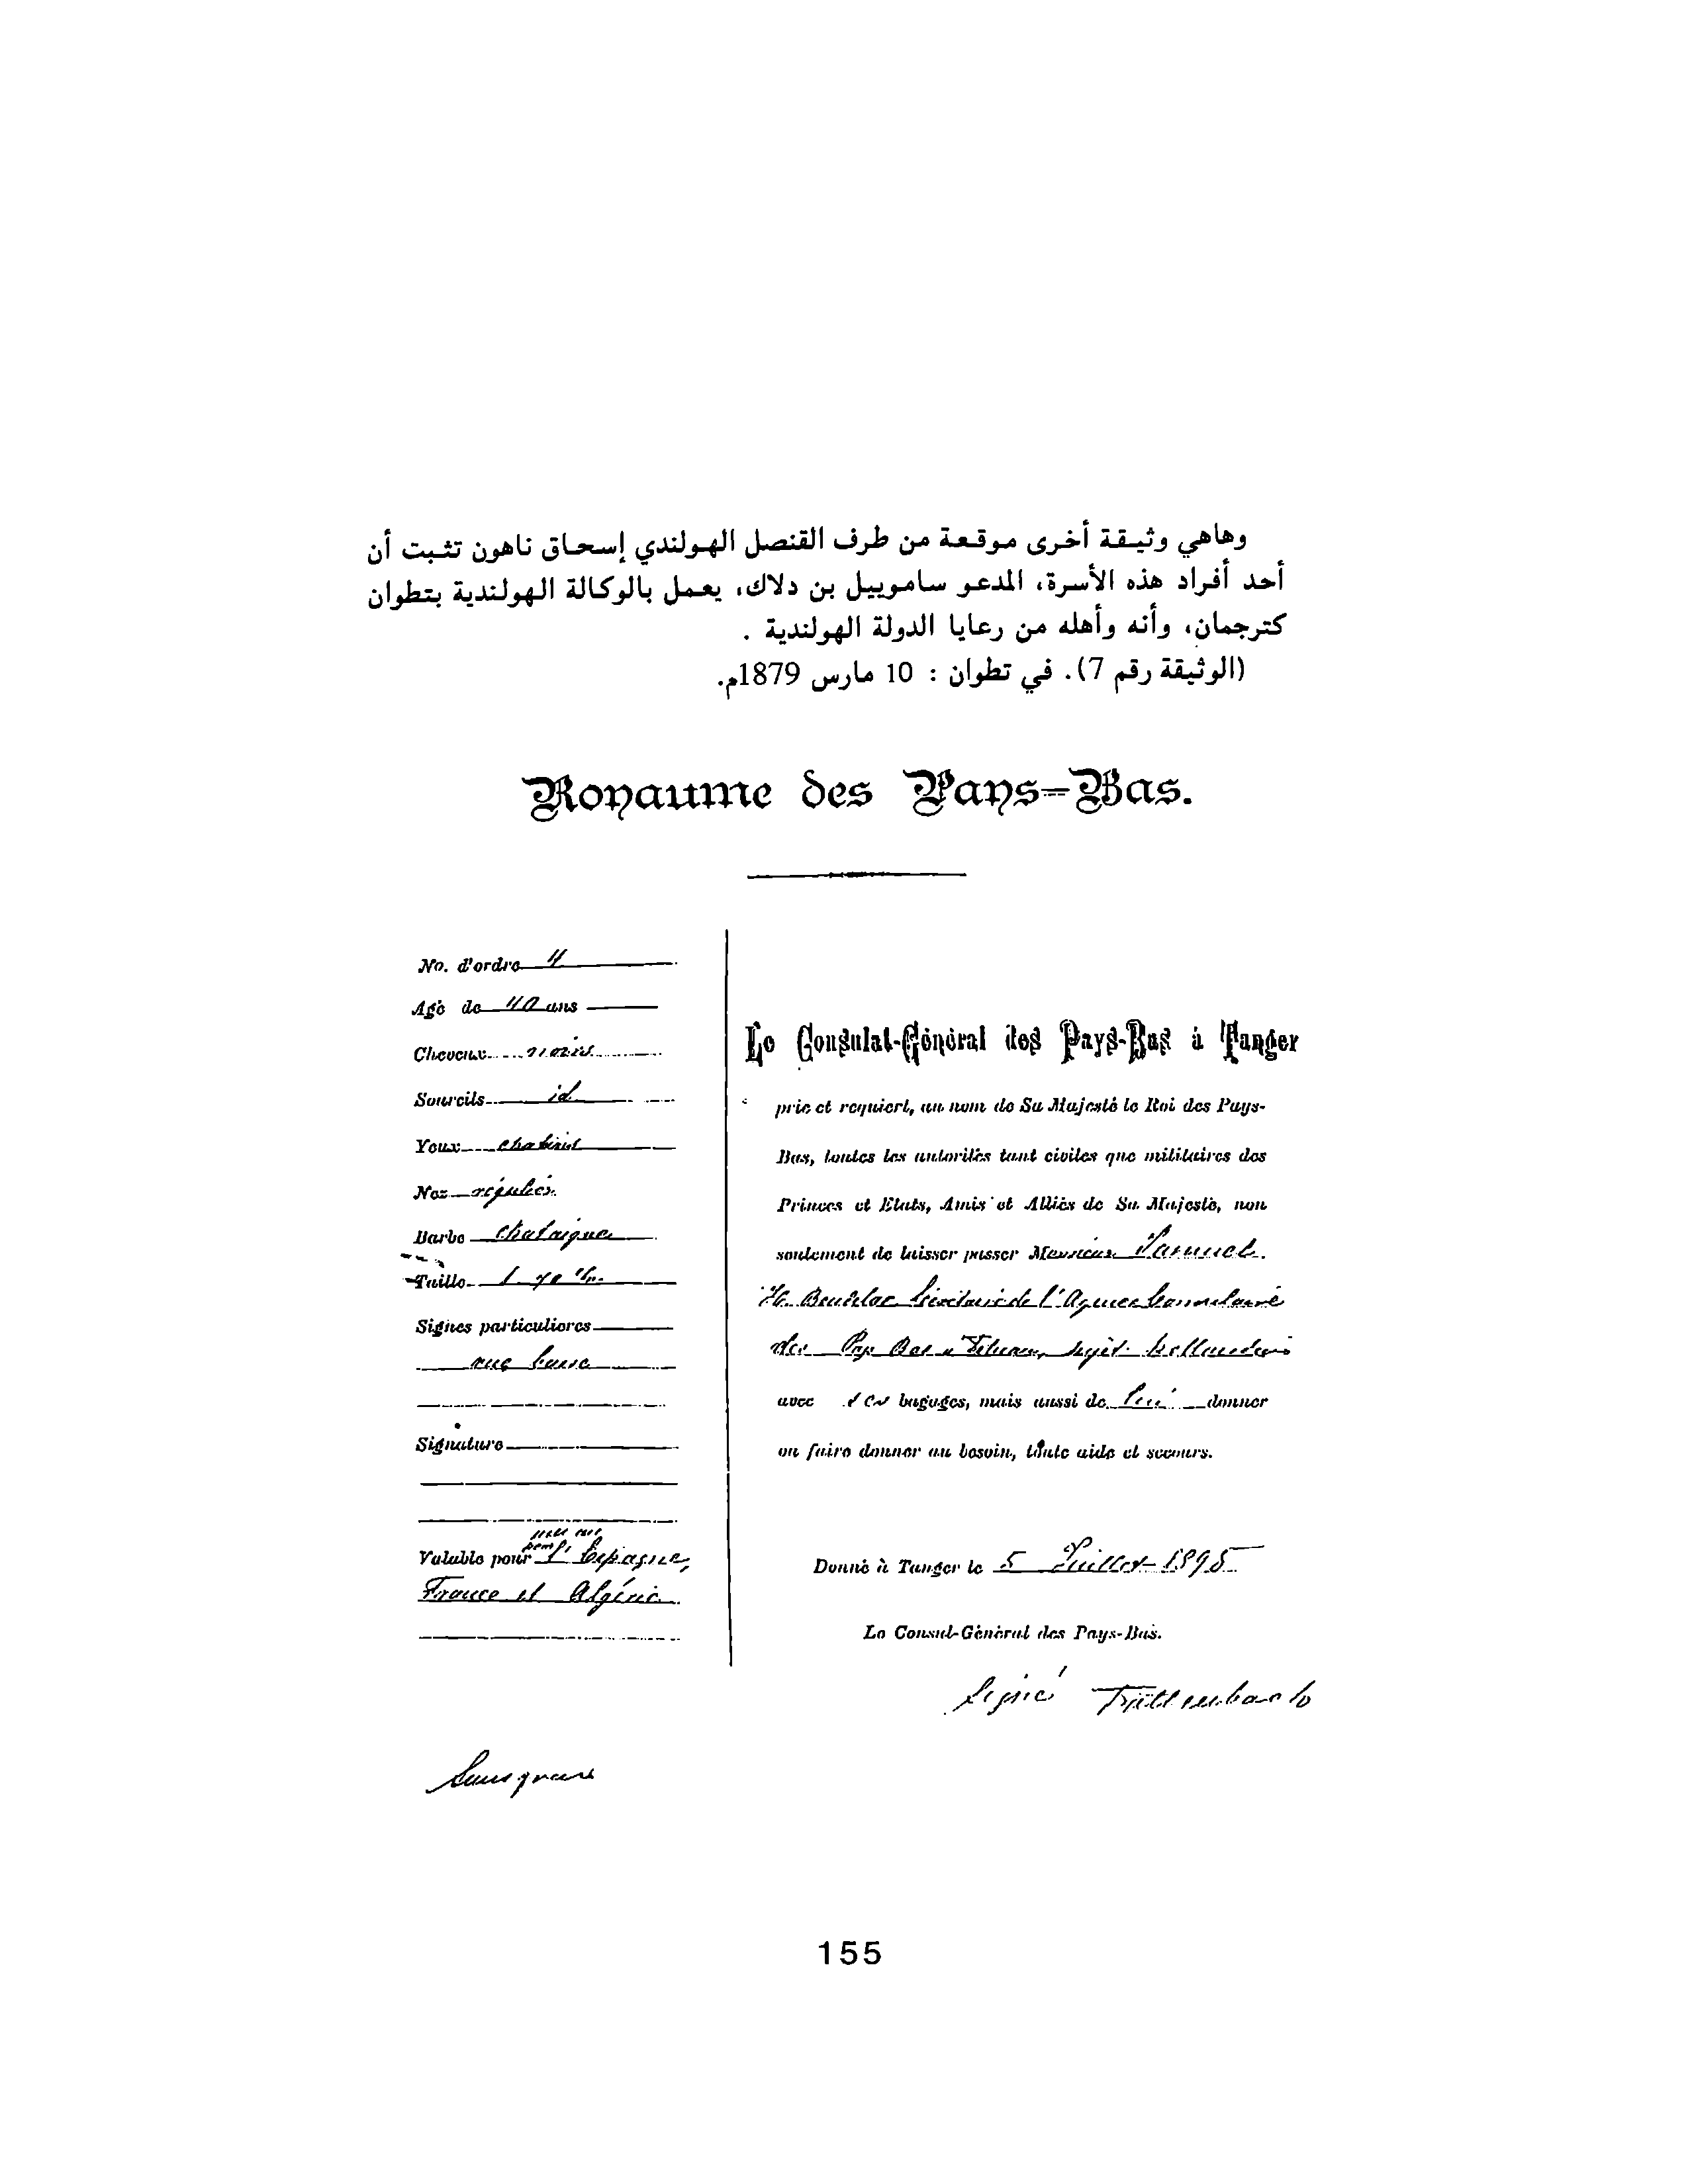 وهاهي وثيقة أخرى موقعة من طرف القنصل الهولندي إسحاق ناهون تثبت أن
أحد أفراد هذه الأسرة، المدعو سامويل بن دلاك، يعمل بالوكالة الهولندية بتطوان
كترجمان، وأنه وأهله من رعايا الدولة الهولندية .
(الوثيقة رقم 7). في تطوان : 10 مارس 1879م.
Royaume des Pays-Bas.
No. d'ordre 4
Agé de 40 ans
Cheveux noirs
Sourcils id
Yeux
Nez régulier
Barbe
Taille 1
Signes particulieres
Signature
Valable pour l'Espagne,
France et Algérie
Le Consulat-Général des Pays-Bas à Tanger
prie et requiert, au nom de Sa Majesté le Roi des Pays-
Bas, toutes les autorités tant civiles que militaires des
Princes et Etats, Amis et Alliés de Sa Majesté, non
seulement de laisser passer Monsieur Samuel
de l'Agence Consulaire
des Pays Bas à Tétuan, sujet hollandais
avec ses bagages, mais aussi de lui donner
ou faire donner au besoin, toute aide et secours.
Donné à Tanger le 5 Juillet 1895
Le Consul-Général des Pays-Bas.
signé
155